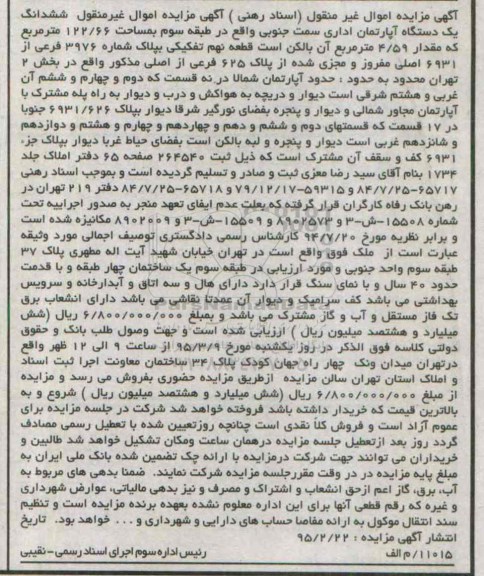 آگهی مزایده اموال غیر منقول (اسناد رهنی ) آگهی مزایده اموال غیرمنقول ششدانگ
یک دستگاه آپارتمان اداری سمت جنوبی واقع در طبقه سوم بمساحت ۱۲۲/۶۶ مترمربع
که مقدار ۴/۵۹ مترمربع آن بالکن است قطعه نهم تفکیکی بپلاک شماره ۳۹۷۶ فرعی از
۶۹۳۱ اصلی مفروز و مجزی شده از پلاک ۶۲۵ فرعی از اصلی مذکور واقع در بخش ۲
تهران محدود به حدود : حدود آپارتمان شمالا در نه قسمت که دوم و چهارم و ششم آن
غربی و هشتم شرقی است دیوار و دریچه به هواکش و درب و دیوار به راه پله مشترک با
آپارتمان مجاور شمالی و دیوار و پنجره بفضای نورگیر شرقا دیوار بپلاک ۶۹۳۱/۶۲۶ جنوبا
در ۱۷ قسمت که قسمتهای دوم و ششم و دهم و چهاردهم و چهارم و هشتم و دوازدهم
و شانزدهم غربی است دیوار و پنجره و لبه بالکن است بفضای حیاط غربا دیوار بپلاک جزء
۶۹۳۱ کف و سقف آن مشترک است که ذیل ثبت ۲۶۴۵۴۰ صفحه ۶۵ دفتر املاک جلد
۱۷۳۴ بنام آقای سید رضا معزی ثبت و صادر و تسلیم گردیده است و بموجب اسناد رهنی
۶۵۷۱۷-۸۴/۷/۲۵ و ۵۹۳۱۵-۷۹/۱۲/۱۷ و ۶۵۷۱۸-۸۴/۷/۲۵ دفتر ۲۱۹ تهران در
رهن بانک رفاه کارگران قرار گرفته که بعلت عدم ایفای تعهد منجر به صدور اجراییه تحت
شماره ۱۵۵۰۸-ش-۳ و ۸۹۰۲۵۷۳ و ۱۵۵۰۹-ش-۳ و ۸۹۰۲۰۰۹ مکانیزه شده است
و برابر نظریه مورخ ۹۴/۷/۲۰ کارشناس رسمی دادگستری توصیف اجمالی مورد وثیقه
عبارت است از ملک فوق واقع است در تهران خیابان شهید آیت اله مطهری پلاک ۳۷
طبقه سوم واحد جنوبی و مورد ارزیابی در طبقه سوم یک ساختمان چهار طبقه و با قدمت
حدود ۴۰ سال و با نمای سنگ قرار دارد دارای هال و سه اتاق و آبدارخانه و سرویس
بهداشتی می باشد کف سرامیک و دیوار آن عمدتا نقاشی می باشد دارای انشعاب برق
تک فاز مستقل و آب و گاز مشترک می باشد و بمبلغ ۶/۸۰۰/۰۰۰/۰۰۰ ریال (شش
میلیارد و هشتصد میلیون ریال ) ارزیابی شده است و جهت وصول طلب بانک و حقوق
دولتی کلاسه فوق الذکر در روز یکشنبه مورخ ۹۵/۳/۹ از ساعت ۹ الی ۱۲ ظهر واقع
درتهران میدان ونک چهار راه جهان کودک پلاک ۳۴ ساختمان معاونت اجرا ثبت اسناد
و املاک استان تهران سالن مزایده ازطریق مزایده حضوری بفروش می رسد و مزایده
از مبلغ ۶/۸۰۰/۰۰۰/۰۰۰ ریال (شش میلیارد و هشتصد میلیون ریال ) شروع و به
بالاترین قیمت که خریدار داشته باشد فروخته خواهد شد شرکت در جلسه مزایده برای
عموم آزاد است و فروش کلا نقدی است چنانچه روزتعیین شده با تعطیل رسمی مصادف
گردد روز بعد ازتعطیل جلسه مزایده درهمان ساعت ومکان تشکیل خواهد شد طالبین و
خریداران می توانند جهت شرکت درمزایده با ارائه چک تضمین شده بانک ملی ایران به
مبلغ پایه مزایده در در وقت مقررجلسه مزایده شرکت نمایند. ضمنا بدهی های مربوط به
آب، برق، گاز اعم ازحق انشعاب و اشتراک و مصرف و نیز بدهی مالیاتی، عوارض شهرداری
و غیره که رقم قطعی آنها برای این اداره معلوم نشده بعهده برنده مزایده است و تنظیم
سند انتقال موکول به ارائه مفاصا حساب های دارایی و شهرداری و ... خواهد بود. تاریخ
انتشار آگهی مزایده : ۹۵/۲/۲۲
۱۱۰۱۵/م الف رئیس اداره سوم اجرای اسناد رسمی-نقیبی